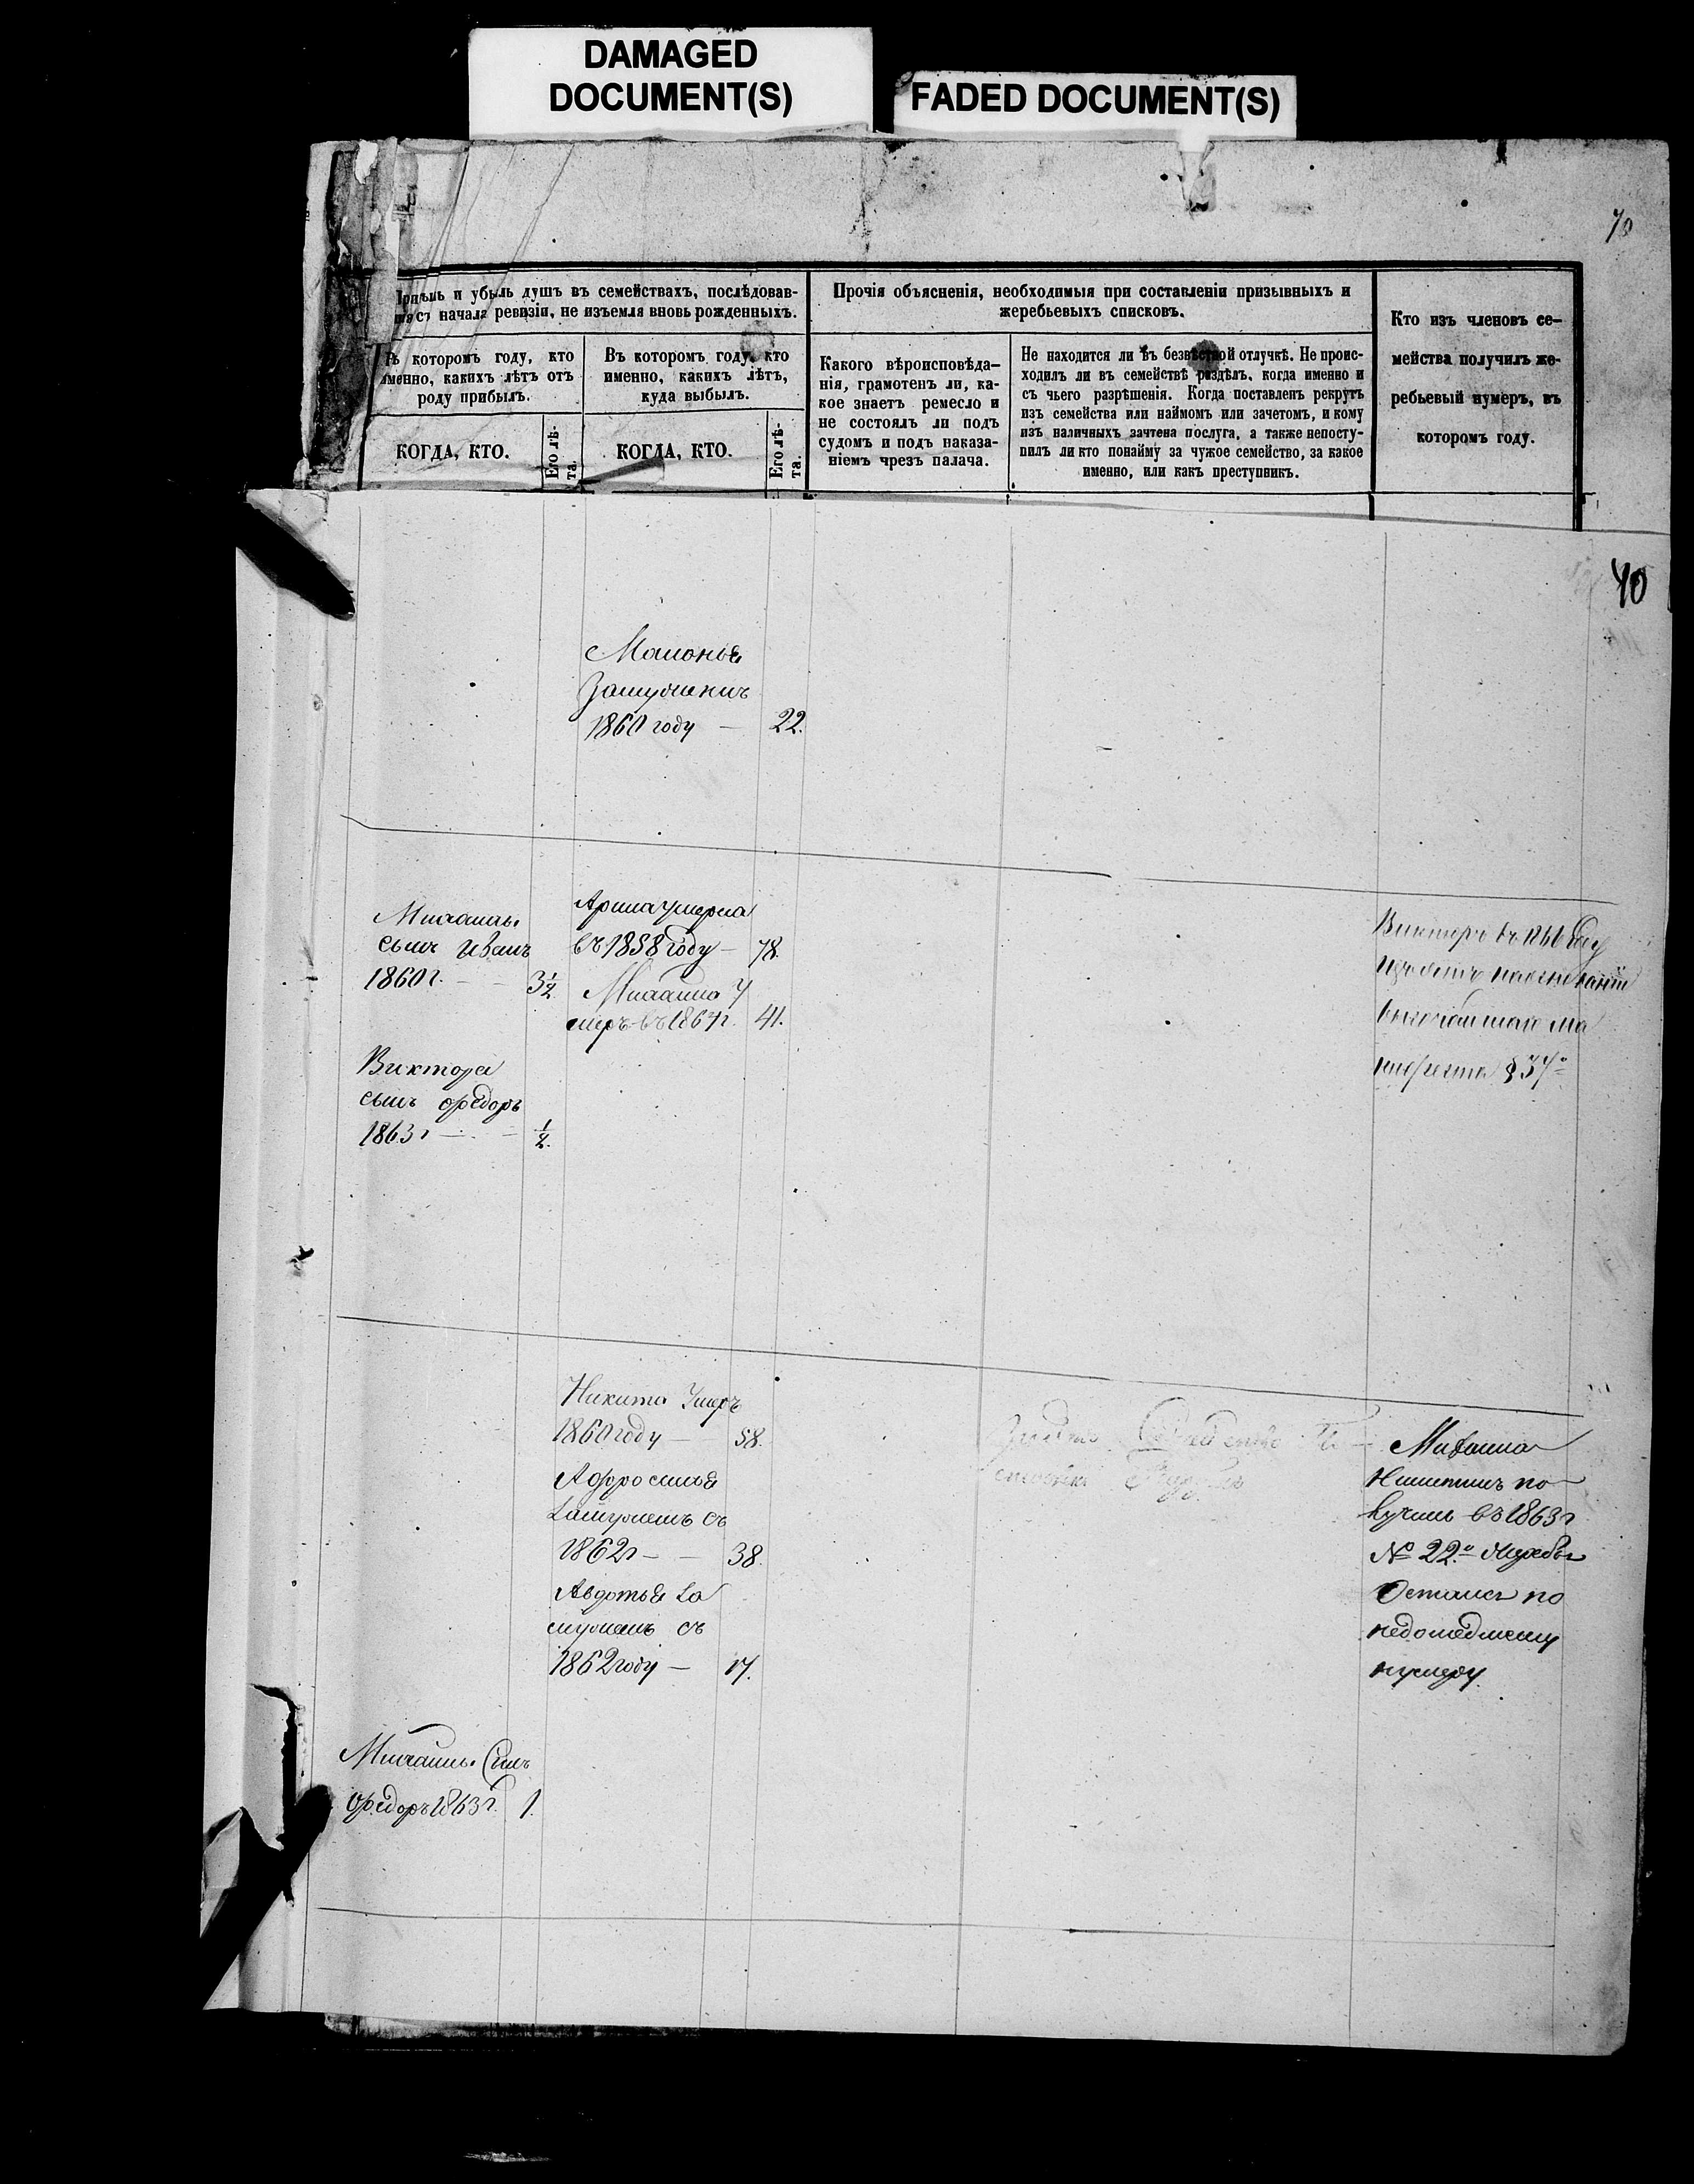 DAMAGED
DOCUMENT(S)
FADED DOCUMENT(S)
70
и убыль душъ въ семействахъ, послѣдовав-
съ начала ревизіи, не изъемля вновь рожденныхъ.
Прочія объясненія, необходимыя при составленіи призывныхъ и
жеребьевыхъ списковъ.
Кто изъ членовъ се-
мейства получилъ же-
ребьевый нумеръ, въ
которомъ году.
Въ которомъ году, кто
именно, какихъ лѣтъ отъ
роду прибылъ.
Въ которомъ году, кто
именно, какихъ лѣтъ,
куда выбылъ.
Какого вѣроисповѣда-
нія, грамотенъ ли, ка-
кое знаетъ ремесло и
не состоялъ ли подъ
судомъ и подъ наказа-
ніемъ чрезъ палача.
Не находится ли въ безвѣстной отлучкѣ. Не проис-
ходилъ ли въ семействѣ раздѣлъ, когда именно и
съ чьего разрѣшенія. Когда поставленъ рекрутъ
изъ семейства или наймомъ или зачетомъ, и кому
изъ наличныхъ зачтена послуга, а также непосту-
пилъ ли кто понайму за чужое семейство, за какое
именно, или какъ преступникъ.
КОГДА, КТО.
Его лѣ-
та.
КОГДА, КТО.
Его лѣ-
та.
70
Маланья
Замужемъ
1860 году — 22.
Михаилы
сынъ Иванъ
1860 г. — 3½
Виктора
сынъ Ѳедоръ
1863 г — ½.
Арина умерла
въ 1858 году — 78.
Михаила у
меръ въ 1864 г. 41.
Викторъ въ 1866 году
манифеста § 37º
Никита Умеръ
1860 году — 58.
Афросинья
Замужемъ съ
1862 г — 38.
Авдотья За
мужемъ съ
1862 году — 17.
Михаила
Никитинъ по
лучилъ въ 1863 г
№ 22º жеребья
Остался по
недошедшему
нумеру.
Михаилы Сынъ
Ѳедоръ 1863 г. 1.